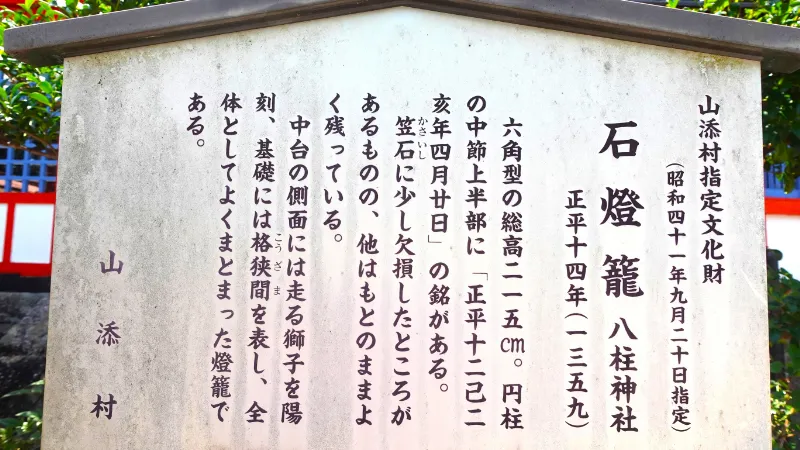 山添村指定文化財
（昭和四十一年九月二十日指定）
石燈籠 八柱神社
正平十四年（一三五九）
六角型の総高二一五㎝。円柱
の中節上半部に「正平十二己二
亥年四月廿日」の銘がある。
笠石に少し欠損したところが
かさいし
あるものの、他はもとのままよ
く残っている。
中台の側面には走る獅子を陽
刻、基礎には格狭間を表し、全
こうざま
体としてよくまとまった燈籠で
ある。
山添村